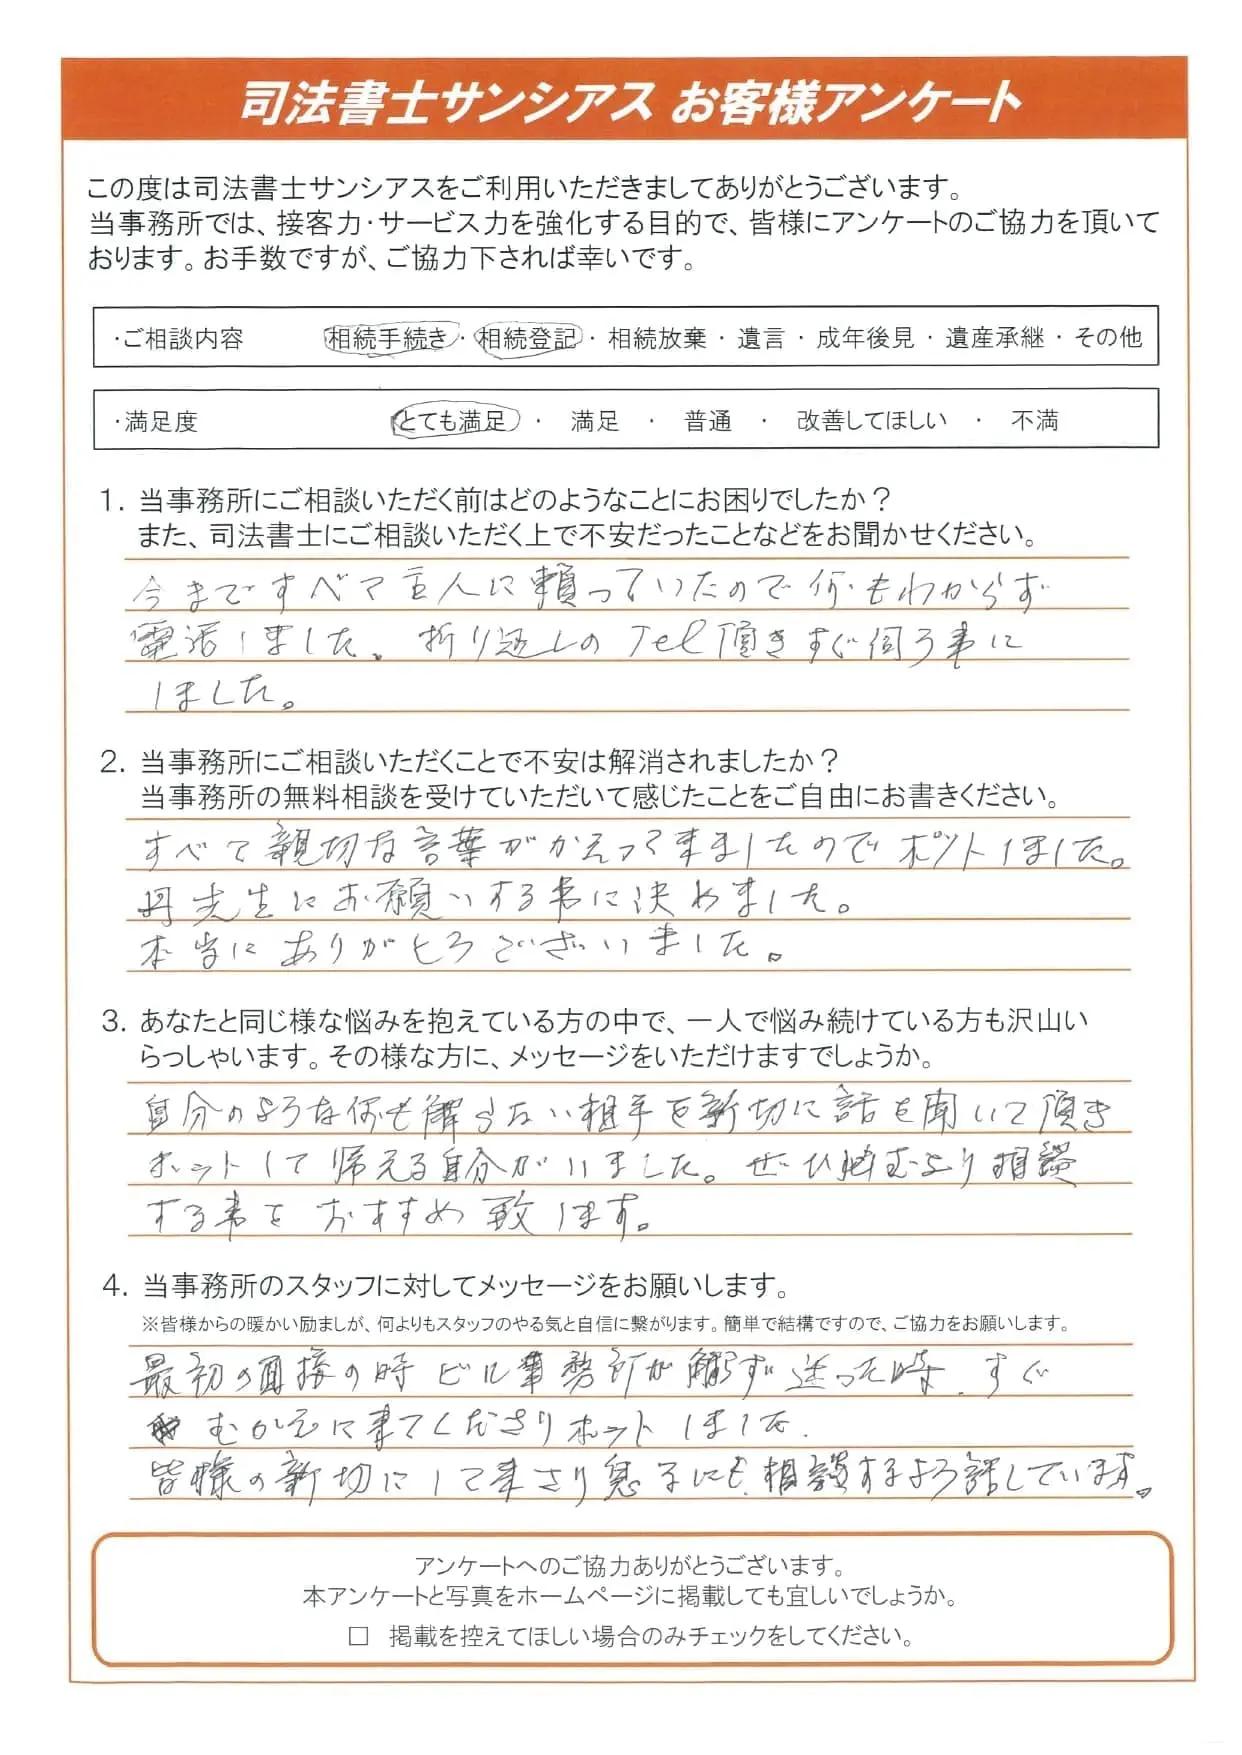 司法書士サンシアス お客様アンケート
この度は司法書士サンシアスをご利用いただきましてありがとうございます。
当事務所では、接客力・サービス力を強化する目的で、皆様にアンケートのご協力を頂いて
おります。お手数ですが、ご協力下されば幸いです。
・ご相談内容 相続手続き・相続登記・相続放棄・遺言・成年後見・遺産承継・その他
・満足度 とても満足 ・ 満足 ・ 普通 ・ 改善してほしい ・ 不満
1. 当事務所にご相談いただく前はどのようなことにお困りでしたか？
また、司法書士にご相談いただく上で不安だったことなどをお聞かせください。
今まですべて主人に頼っていたので何もわからず
電話しました。折り返しのTel頂きすぐ伺う事に
しました。
2. 当事務所にご相談いただくことで不安は解消されましたか？
当事務所の無料相談を受けていただいて感じたことをご自由にお書きください。
すべて親切な言葉がかえって来ましたのでホットしました。
丹先生にお願いする事に決めました。
本当にありがとうございました。
3. あなたと同じ様な悩みを抱えている方の中で、一人で悩み続けている方も沢山い
らっしゃいます。その様な方に、メッセージをいただけますでしょうか。
自分のような何も解らない相手を親切に話を聞いて頂き
ホットして帰える自分がいました。ぜひ悩むより相談
する事をおすすめ致します。
4. 当事務所のスタッフに対してメッセージをお願いします。
※皆様からの暖かい励ましが、何よりもスタッフのやる気と自信に繋がります。簡単で結構ですので、ご協力をお願いします。
最初の面接の時ビル事務所が解らず迷った時、すぐ
むかえに来てくださりホットしました.
皆様の親切にして下さり息子にも相談するよう話しています。
アンケートへのご協力ありがとうございます。
本アンケートと写真をホームページに掲載しても宜しいでしょうか。
□ 掲載を控えてほしい場合のみチェックをしてください。